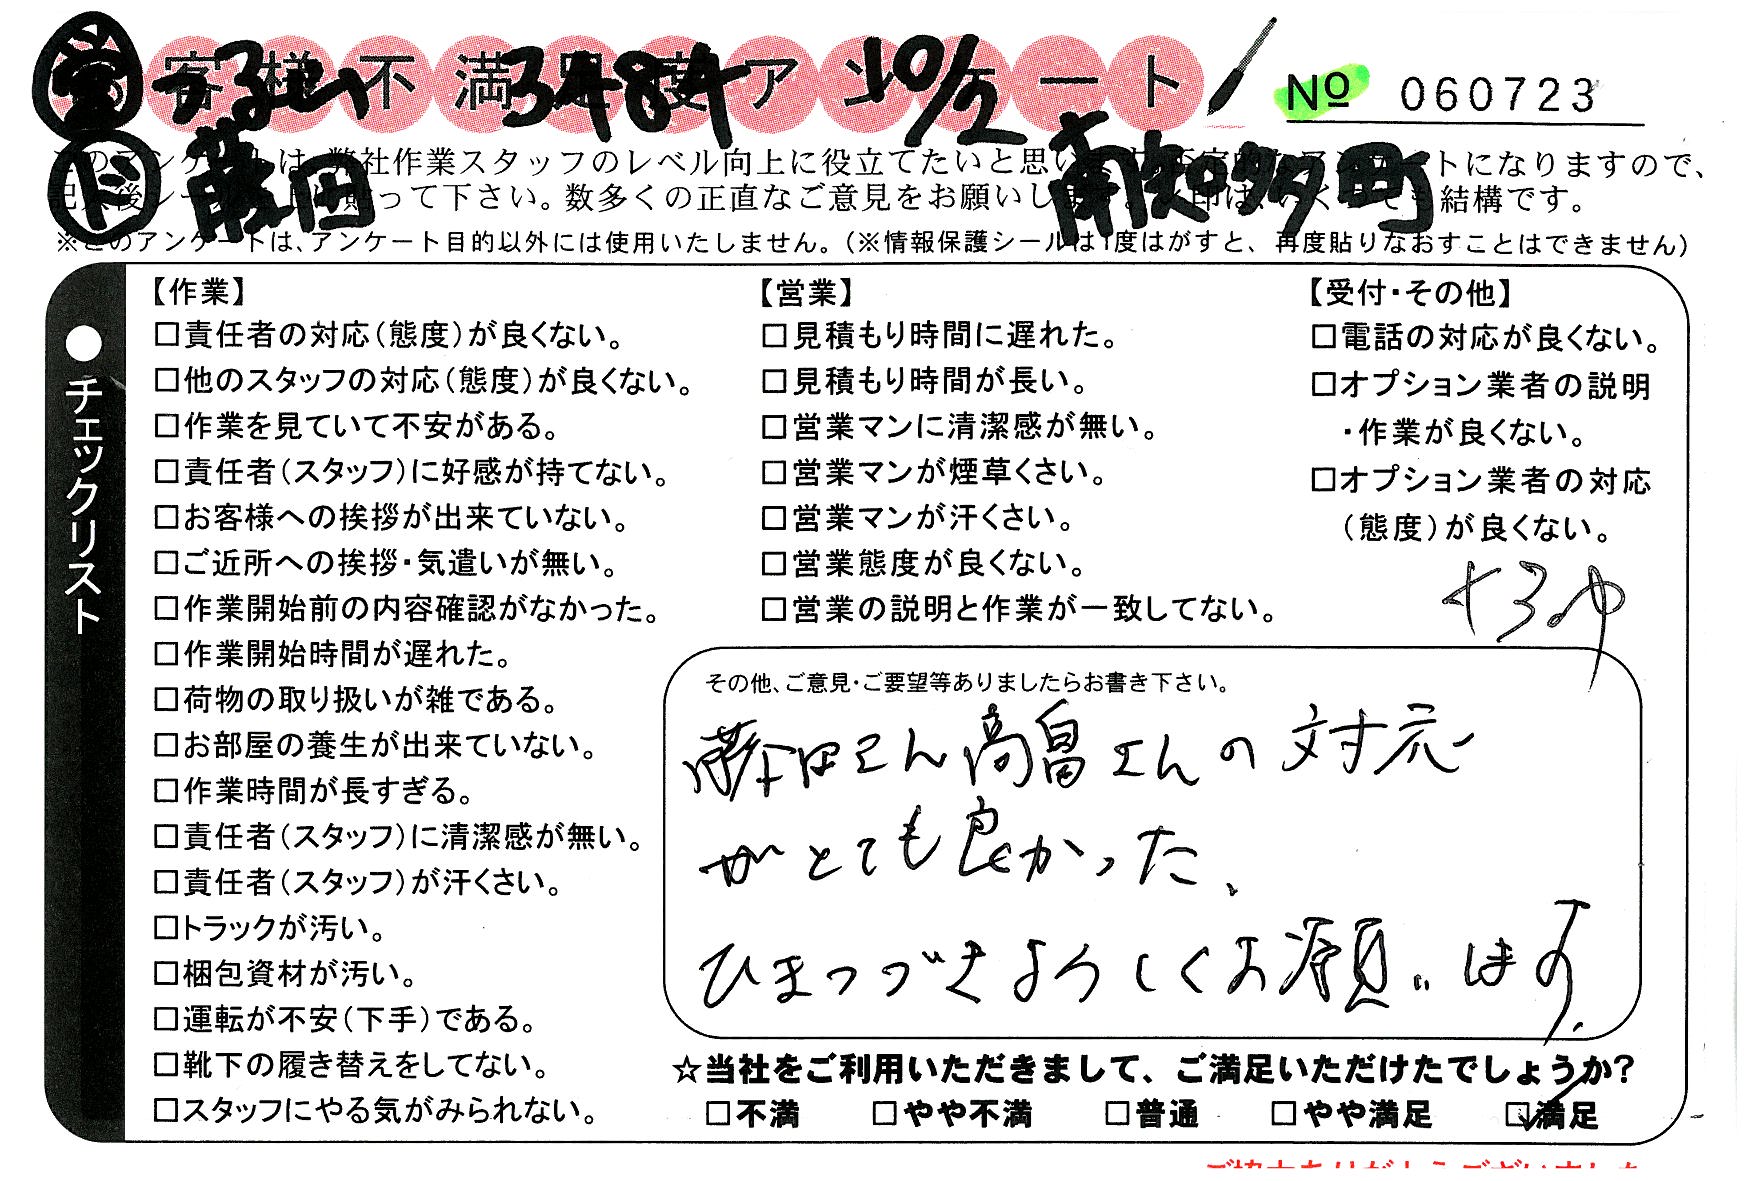 お客様不満足度アンケート
No 060723
営 つるい 3484 10/2
ド 藤田 南知多町
このアンケートは、弊社作業スタッフのレベル向上に役立てたいと思います。否定的なアンケートになりますので、
記入後シールを上に貼って下さい。数多くの正直なご意見をお願いします。
結構です。
※このアンケートは、アンケート目的以外には使用いたしません。(※情報保護シールは1度はがすと、再度貼りなおすことはできません)
●チェックリスト
【作業】
□責任者の対応(態度)が良くない。
□他のスタッフの対応(態度)が良くない。
□作業を見ていて不安がある。
□責任者(スタッフ)に好感が持てない。
□お客様への挨拶が出来ていない。
□ご近所への挨拶・気遣いが無い。
□作業開始前の内容確認がなかった。
□作業開始時間が遅れた。
□荷物の取り扱いが雑である。
□お部屋の養生が出来ていない。
□作業時間が長すぎる。
□責任者(スタッフ)に清潔感が無い。
□責任者(スタッフ)が汗くさい。
□トラックが汚い。
□梱包資材が汚い。
□運転が不安(下手)である。
□靴下の履き替えをしてない。
□スタッフにやる気がみられない。
【営業】
□見積もり時間に遅れた。
□見積もり時間が長い。
□営業マンに清潔感が無い。
□営業マンが煙草くさい。
□営業マンが汗くさい。
□営業態度が良くない。
□営業の説明と作業が一致してない。
【受付・その他】
□電話の対応が良くない。
□オプション業者の説明
・作業が良くない。
□オプション業者の対応
(態度)が良くない。
その他、ご意見・ご要望等ありましたらお書き下さい。
藤田さん高畠さんの対応
がとても良かった、
ひきつづきよろしくお願いします.
☆当社をご利用いただきまして、ご満足いただけたでしょうか?
□不満 □やや不満 □普通 □やや満足 ☑満足
ご協力ありがとうございました